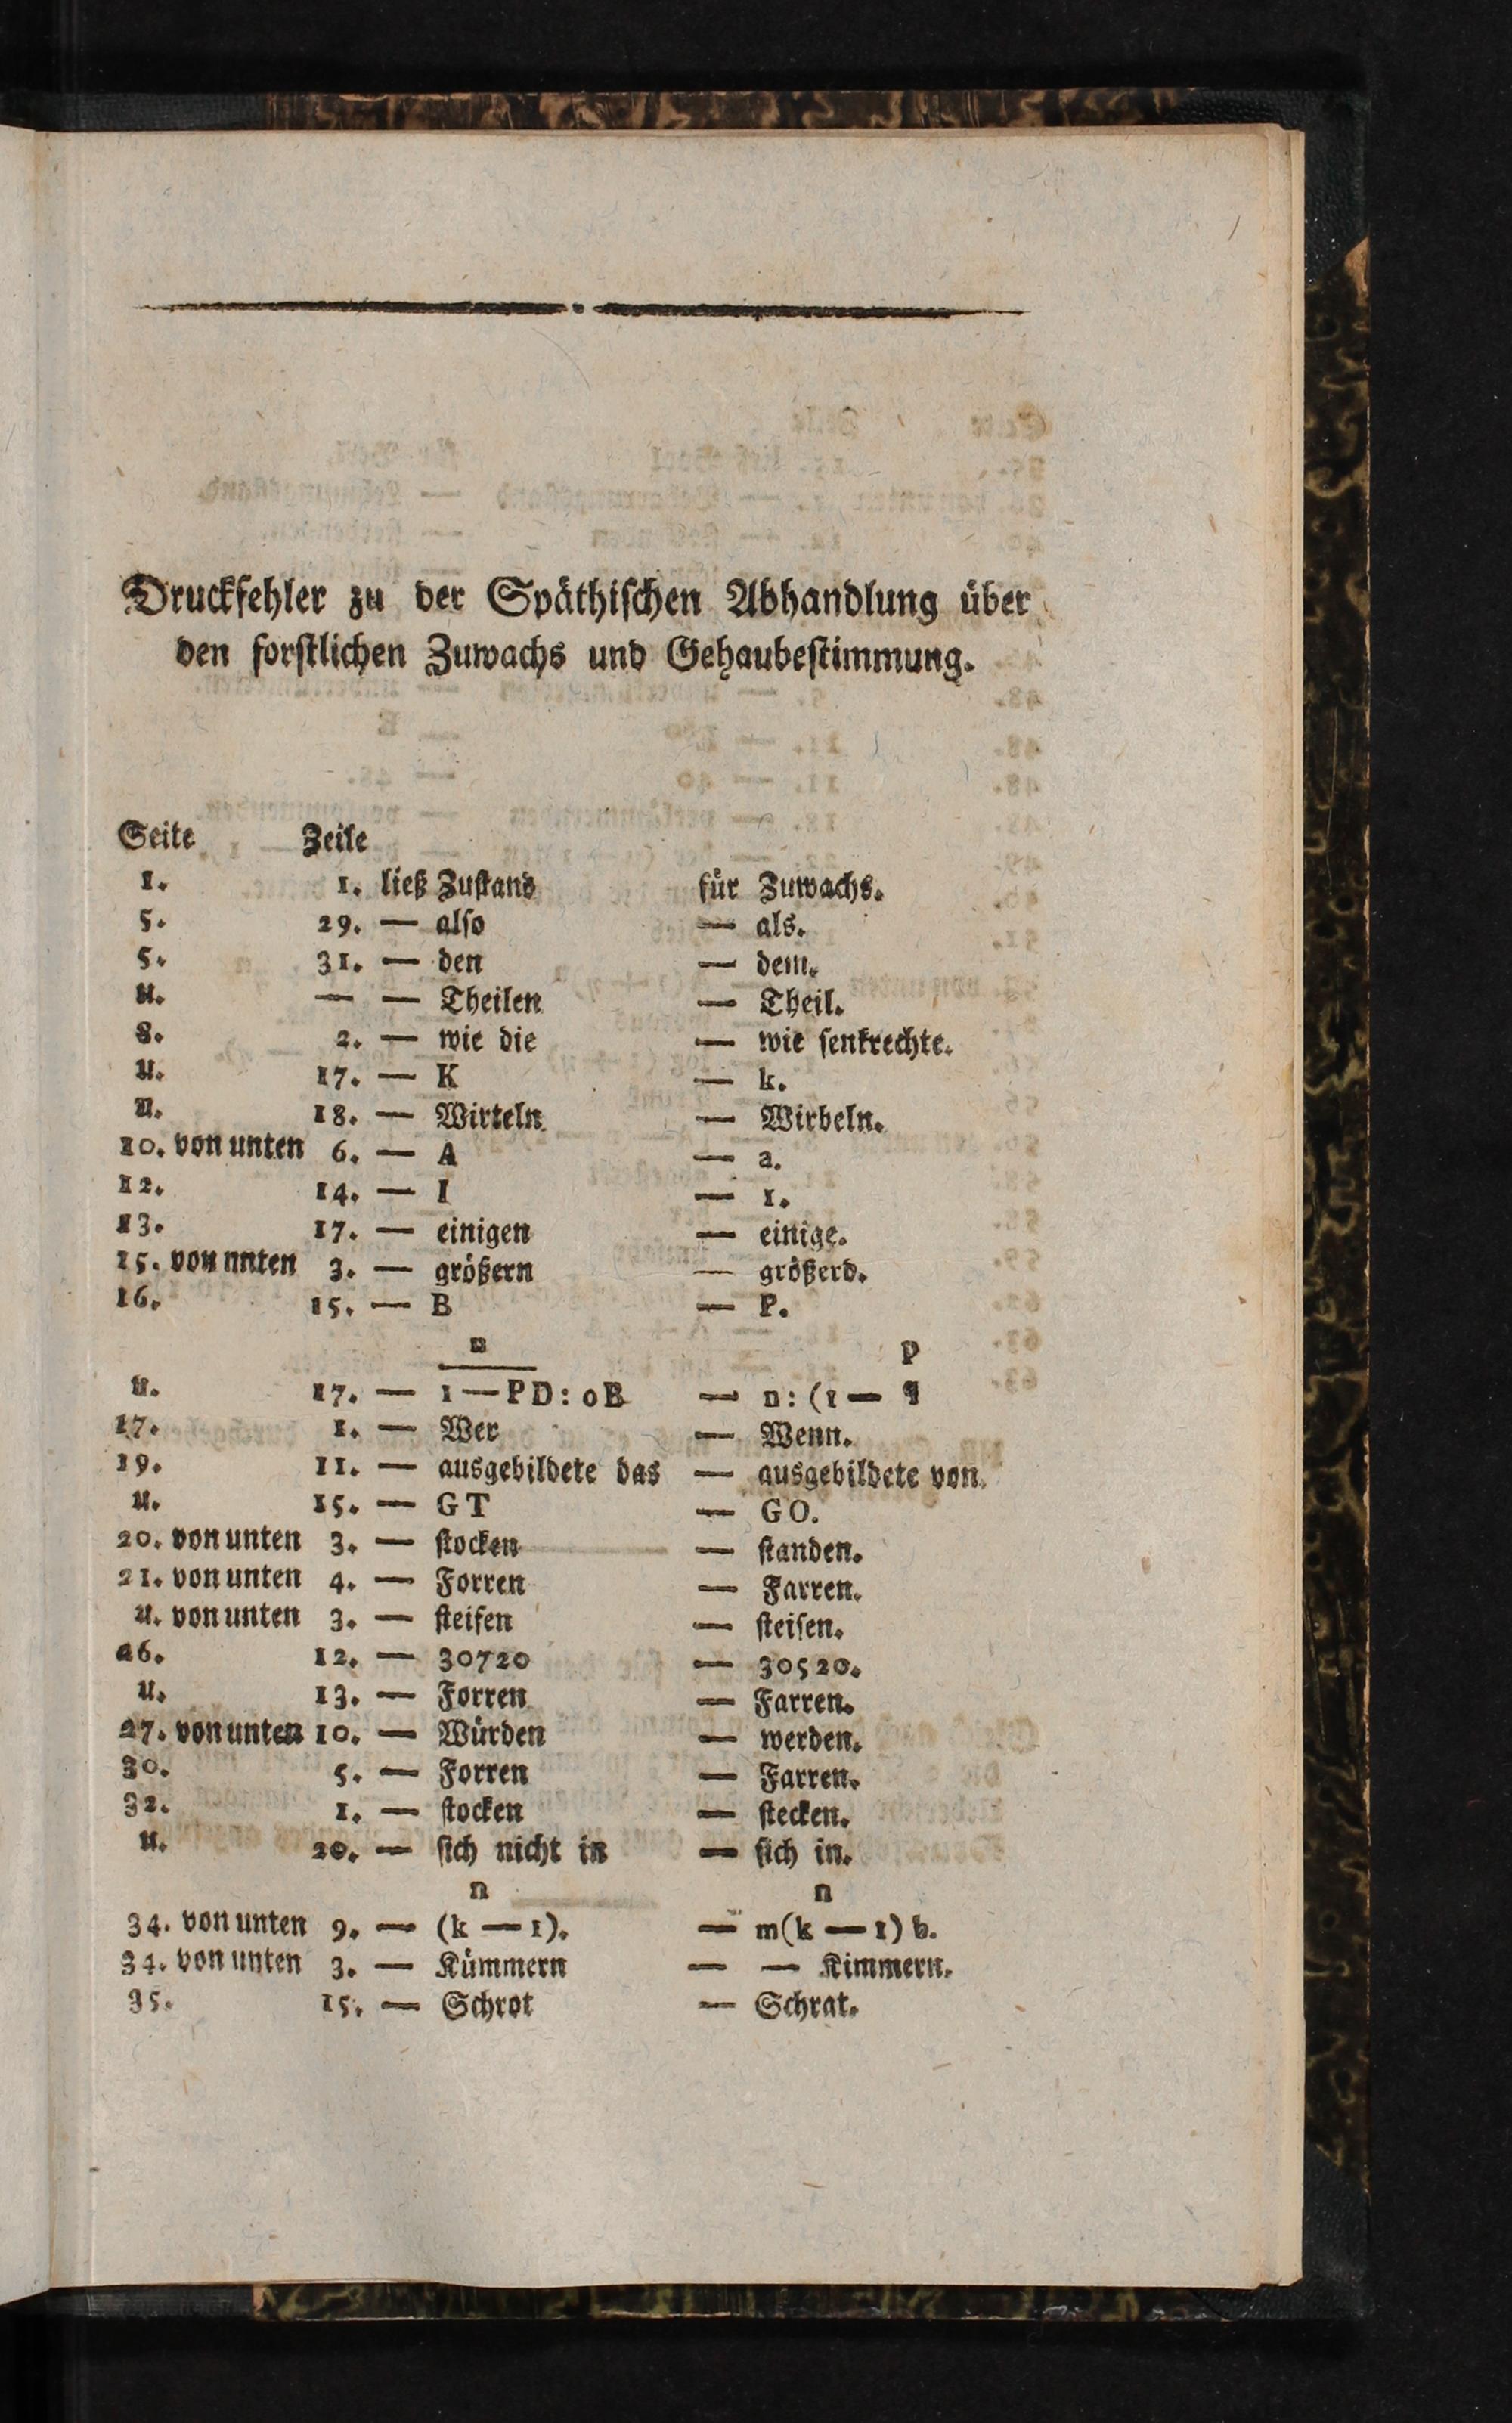 Druckfehler zu der Späthischen Abhandlung über
den forstlichen Zuwachs und Gehaubestimmung.
Seite Zeile
1. 1. ließ Zustand für Zuwachs.
5. 29. — also — als.
5. 31. — den — dem.
u. — — Theilen — Theil.
8. 2. — wie die — wie senkrechte.
u. 17. — K — k.
u. 18. — Wirteln — Wirbeln.
10. von unten 6. — A — a.
12. 14. — I — 1.
13. 17. — einigen — einige.
15. von nnten 3. — größern — größerd.
16. 15. — B — P.
n P
u. 17. — 1 — PD: oB — n: (1 — q
17. 1. — Wer — Wenn.
19. 11. — ausgebildete das — ausgebildete von.
u. 15. — GT — GO.
20. von unten 3. — stocken — standen.
21. von unten 4. — Forren — Farren.
u. von unten 3. — steifen — steisen.
26. 12. — 30720 — 30520.
u. 13. — Forren — Farren.
27. von unten 10. — Würden — werden.
30. 5. — Forren — Farren.
32. 1. — stocken — stecken.
u. 20. — sich nicht in — sich in.
n n
34. von unten 9. — (k — 1). — m(k — 1) b.
34. von unten 3. — Kümmern — — Kimmern.
35. 15. — Schrot — Schrat.